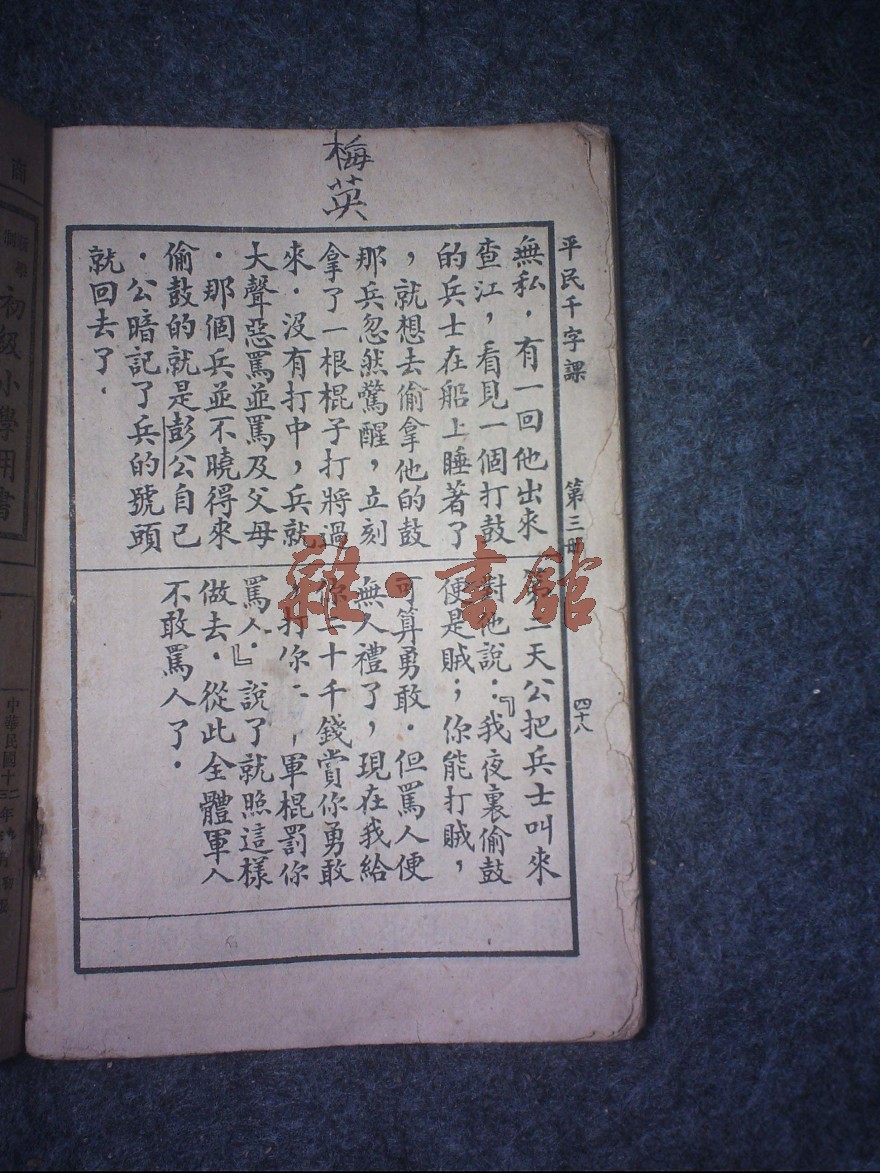 梅英
平民千字課 第三冊 四十八
無私．有一回他出來
查江，看見一個打鼓
的兵士在船上睡著了
，就想去偷拿他的鼓
那兵忽然驚醒，立刻
拿了一根棍子打將過
來．沒有打中，兵就
大聲惡罵並罵及父母
．那個兵並不曉得來
偷鼓的就是彭公自己
．公暗記了兵的號頭
就回去了．
第二天公把兵士叫來
對他說：『我夜裏偷鼓
便是賊；你能打賊，
可算勇敢．但罵人便
無人禮了，現在我給
你二十千錢賞你勇敢
打你二 軍棍罰你
罵人．』說了就照這樣
做去．從此全體軍人
不敢罵人了．
雜·書館
商
初級小學用書
中華民國十二年